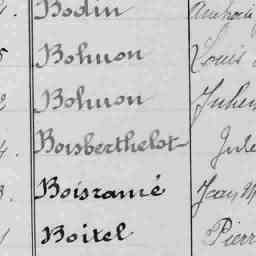 Bodin
Bohuon Louis
Bohuon Julien
Boisberthelot Jule
Boisramé Jean M
Boitel Pierr